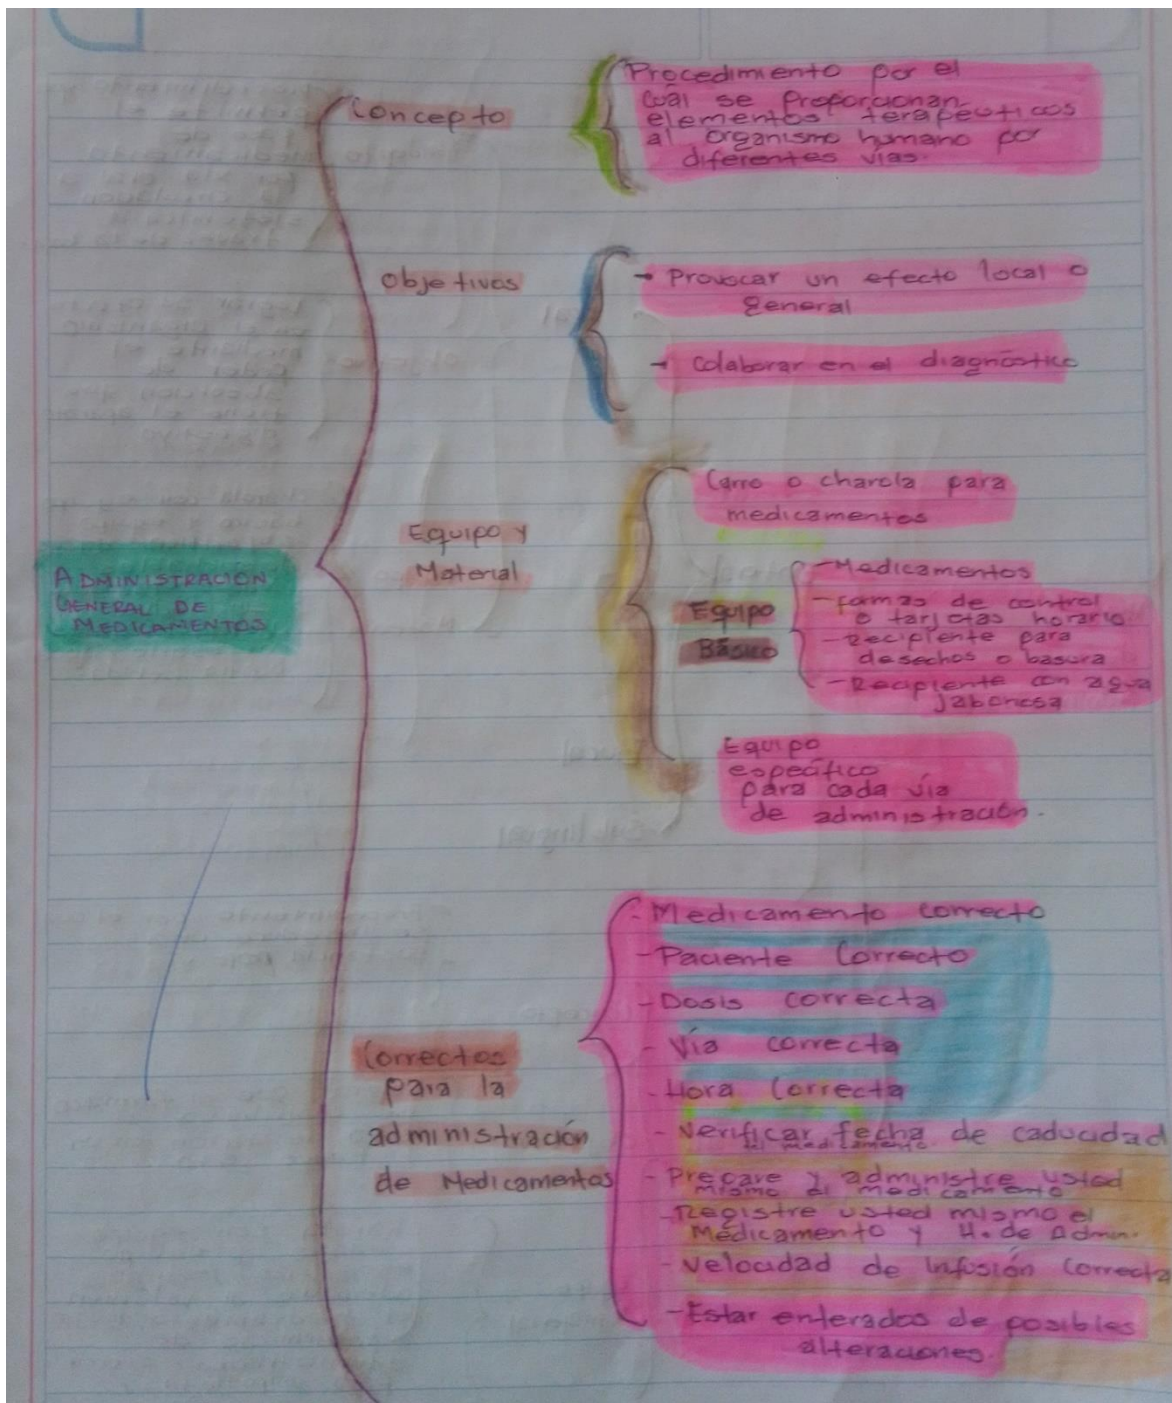 ADMINISTRACION
GENERAL DE
MEDICAMENTOS
Concepto
Procedimiento por el
cuál se Proporcionan
elementos terapéuticos
al organismo humano por
diferentes vías.
Objetivos
→ Provocar un efecto local o
general
→ Colaborar en el diagnóstico
Equipo y
Material
Carro o charola para
medicamentos
Equipo
Básico
- Medicamentos
- formas de control
o tarjetas horario
- Recipiente para
desechos o basura
- Recipiente con agua
jabonosa
Equipo
específico
para cada vía
de administración.
Correctos
para la
administración
de Medicamentos
- Medicamento correcto
- Paciente Correcto
- Dosis correcta
- Vía correcta
- Hora Correcta
- Verificar fecha de caducidad
del medicamento
- Prepare y administre usted
mismo el medicamento
- Registre usted mismo el
Medicamento y H. de Admin.
- Velocidad de Infusión Correcta
- Estar enterados de posibles
alteraciones.